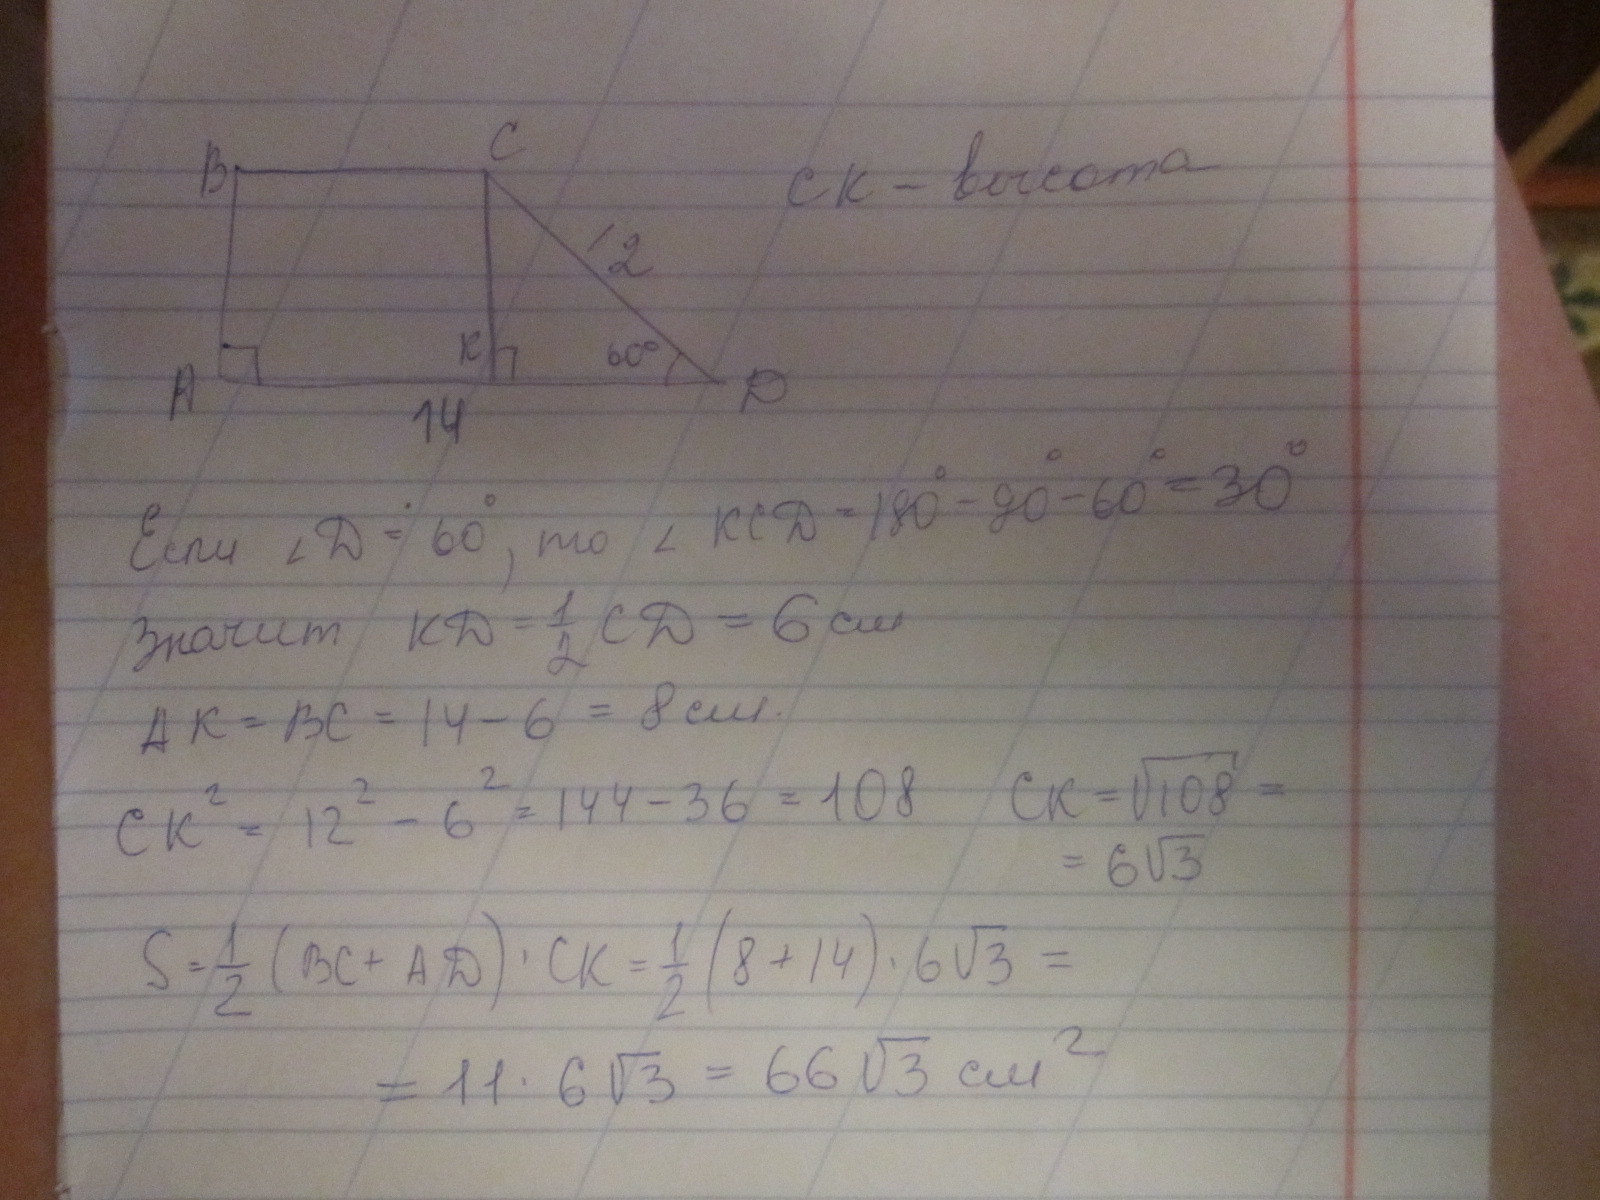 B
C
CK – высота
12
K
60°
A
D
14
Если ∠D = 60°, то ∠KCD = 180° - 90° - 60° = 30°
Значит KD = 1/2 CD = 6 см
AK = BC = 14 - 6 = 8 см.
CK² = 12² - 6² = 144 - 36 = 108
CK = √108 =
= 6√3
S = 1/2 (BC + AD) · CK = 1/2 (8 + 14) · 6√3 =
= 11 · 6√3 = 66√3 см²